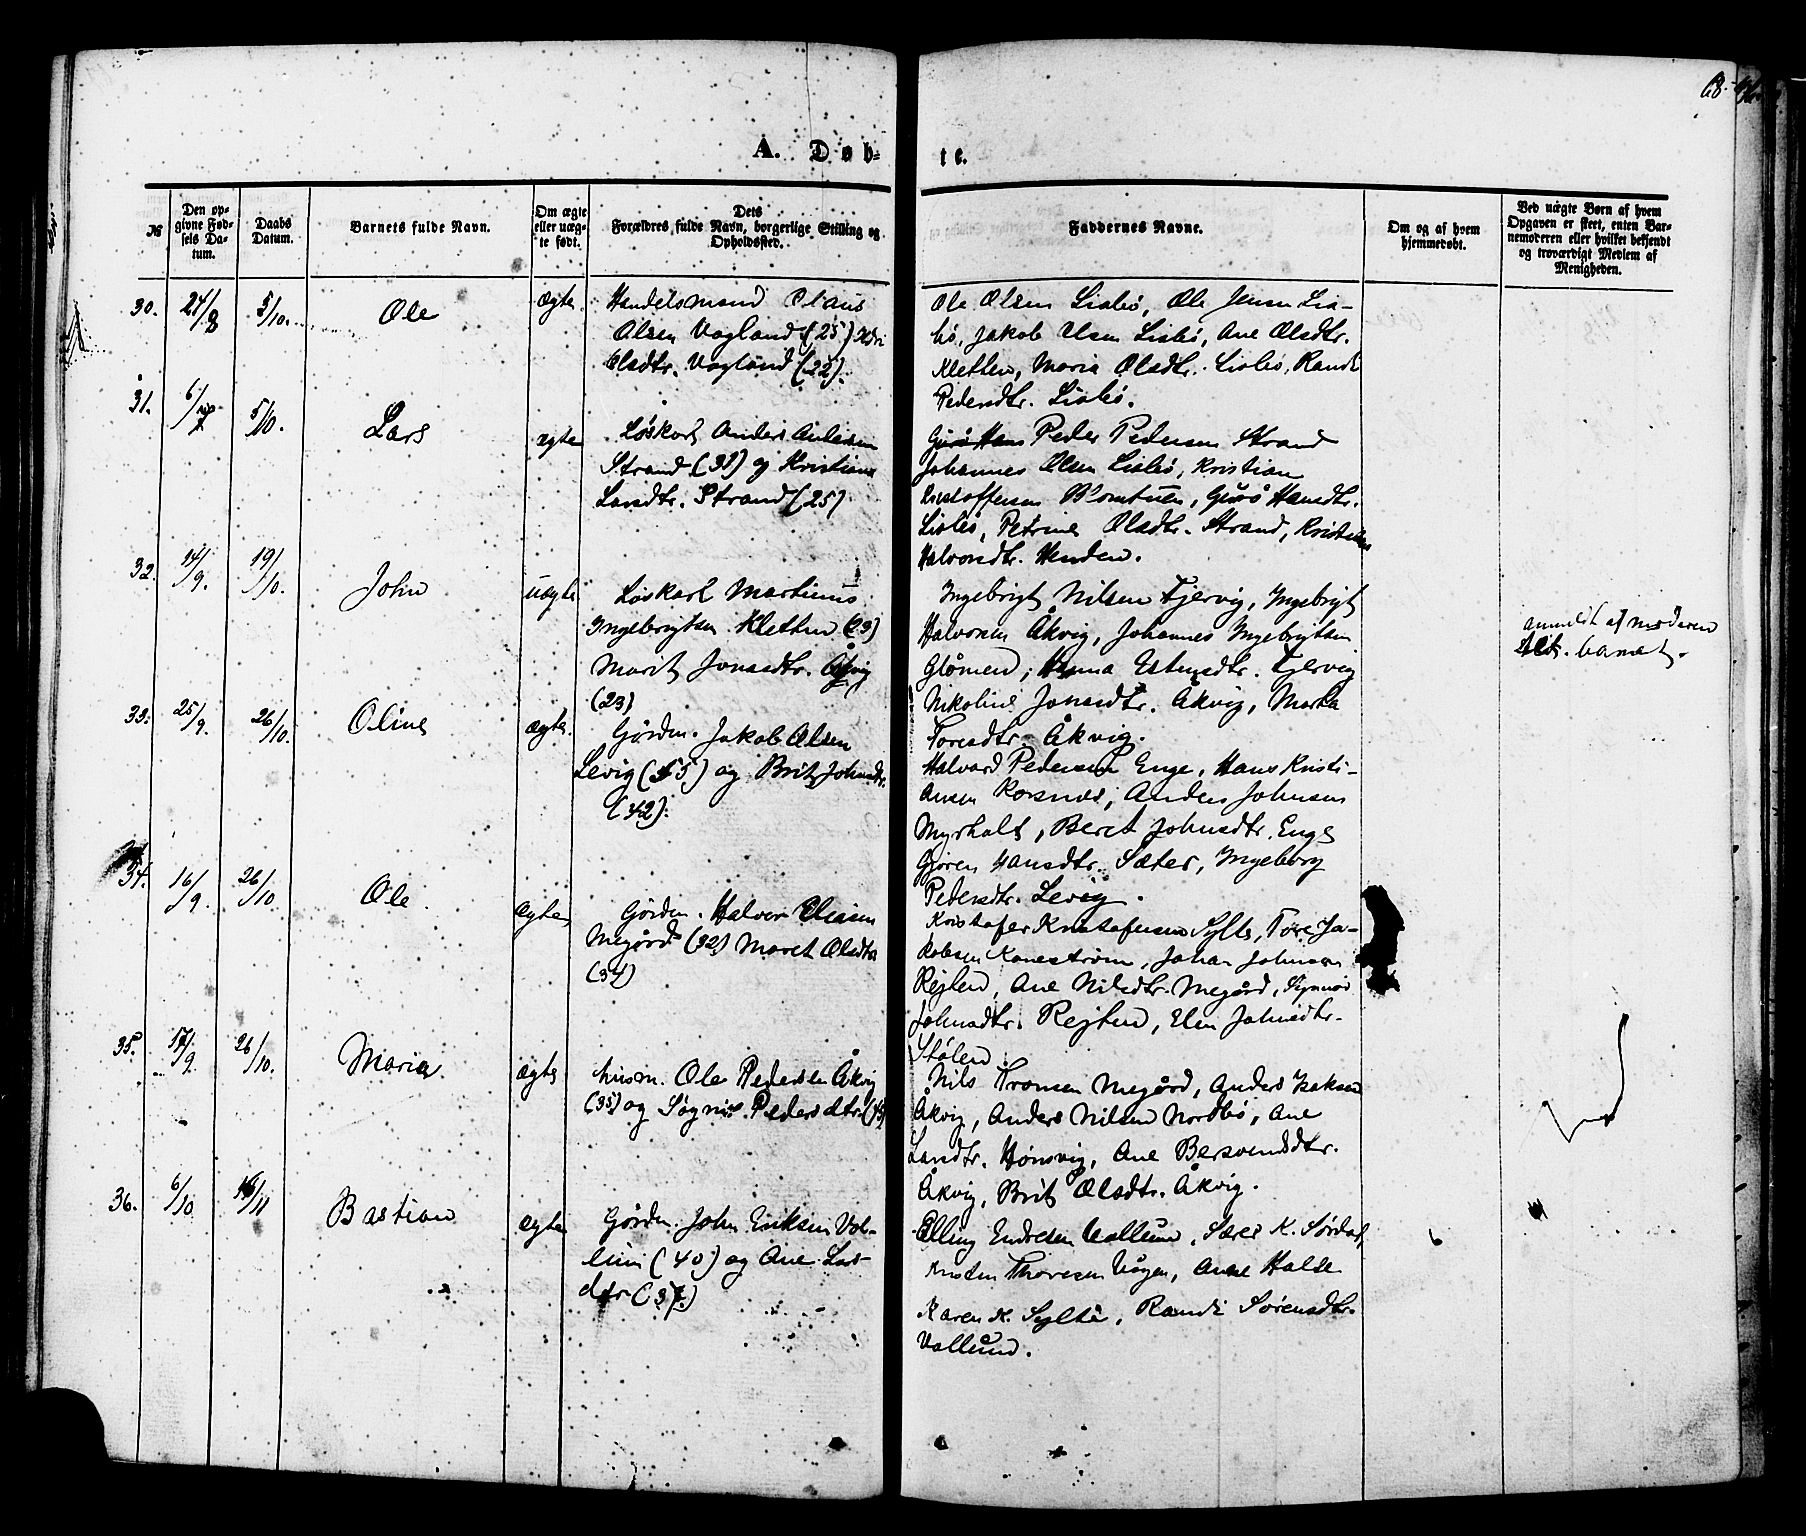 68.
A. Døb-
te.
№
Den op-
givne Fød-
sels Da-
tum.
Daabs
Datum.
Barnets fulde Navn.
Om ægte
eller uæg-
te født.
Dets
Forældres fulde Navn, borgerlige Stilling og
Opholdssted.
Faddernes Navne.
Om og af hvem
hjemmedøbt.
Ved uægte Børn af hvem
Opgaven er skeet, enten Bar-
nemoderen eller hvilket bekjendt
og troværdigt Medlem af
Menigheden.
30. 24/8 5/10. Ole ægte
Handelsmand Claus
Olsen Vagland (25)
Olsdtr. Vagland (22).
Ole Olsen Lisbø, Ole Jensen Lis-
bø, Jakob Olsen Lisbø, Ane Olsdtr.
Kletten, Maria Olsdtr. Lisbø, Randi
Pedersdtr. Lisbø.
31. 6/7 5/10. Lars ægte
Løskarl Anders Andersen
Strand (31) og Kristiane
Larsdtr. Strand (25)
Peder Pedersen Strand
Johannes Olsen Lisbø, Kristian
Kristoffersen Blomtuen, Gurå Hansdtr.
Lisbø, Petrine Olsdtr. Strand, Kristine
Halvorsdtr. Henden.
32. 14/9. 19/10. John uægte
Løskarl Martinus
Ingebrigtsen Kletten (23)
Marit Jonasdtr. Åkvig
(23)
Ingebrigt Nilsen Fjervig, Ingebrigt
Halvorsen Åkvig, Johannes Ingebrigtsen
Glåmen, Hanna Estensdtr. Fjervig
Nikoline Jonasdtr. Åkvig, Marta
Toresdtr. Åkvig.
anmeldt af moderen
barnet.
33. 25/9. 26/10. Oline ægte.
Gårdm. Jakob Olsen
Levig (55) og Brit Johnsdtr.
(42).
Halvard Pedersen Enge, Hans Kristi-
ansen Korsnes, Anders Johnsen
Myrholt, Beret Johnsdtr. Enge
Gjøren Hansdtr. Sæter, Ingeborg
Pedersdtr. Levig.
34. 16/9. 26/10 Ole ægte
Gårdm. Halvor Eliasen
Megård (32) Maret Olsdtr
(34)
Kristofer Kristofersen Sylte, Tore Ja-
kobsen Kanestrøm, Johan Johnsen
Rejten, Ane Nilsdtr. Megård, Synnøv
Johnsdtr. Rejten, Elen Johnsdtr.
Stølen
35. 17/9. 26/10. Maria ægte
husm. Ole Pedersen Åkvig
(35) og Søgni Pedersdtr.
Nils Tronsen Megård, Anders Isaksen
Åkvig, Anders Nilsen Nordbø, Ane
Larsdtr. Hønsvig, Ane Bersvendsdtr.
Åkvig, Brit Olsdtr. Åkvig.
36. 6/10 16/11 Bastian ægte
Gårdm. John Eriksen Val-
lund (40) og Ane Lars-
dtr (37)
Elling Endresen Vallund, Søren K. Sørdal,
Kristen Thoresen Vågen, Anne Halse
Karen K. Sylte, Randi Sørensdtr.
Vallund.